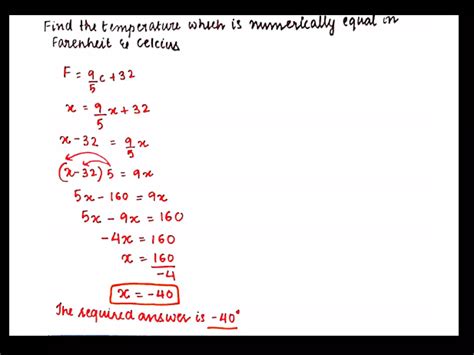 Find the temperature which is numerically equal in
Farenheit & Celcius
F = 9/5 c + 32
x = 9/5 x + 32
x - 32 = 9/5 x
(x - 32) 5 = 9x
5x - 160 = 9x
5x - 9x = 160
-4x = 160
x = 160/-4
x = -40
The required answer is -40°